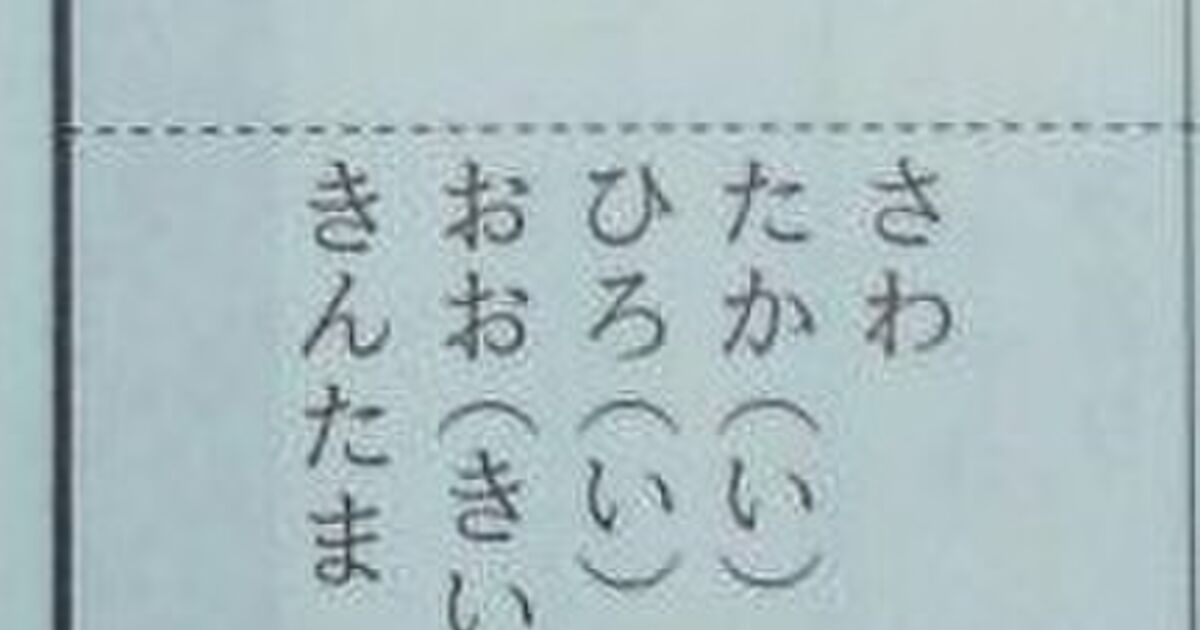 さわ
たか（い）
ひろ（い）
おお（きい
きんたま